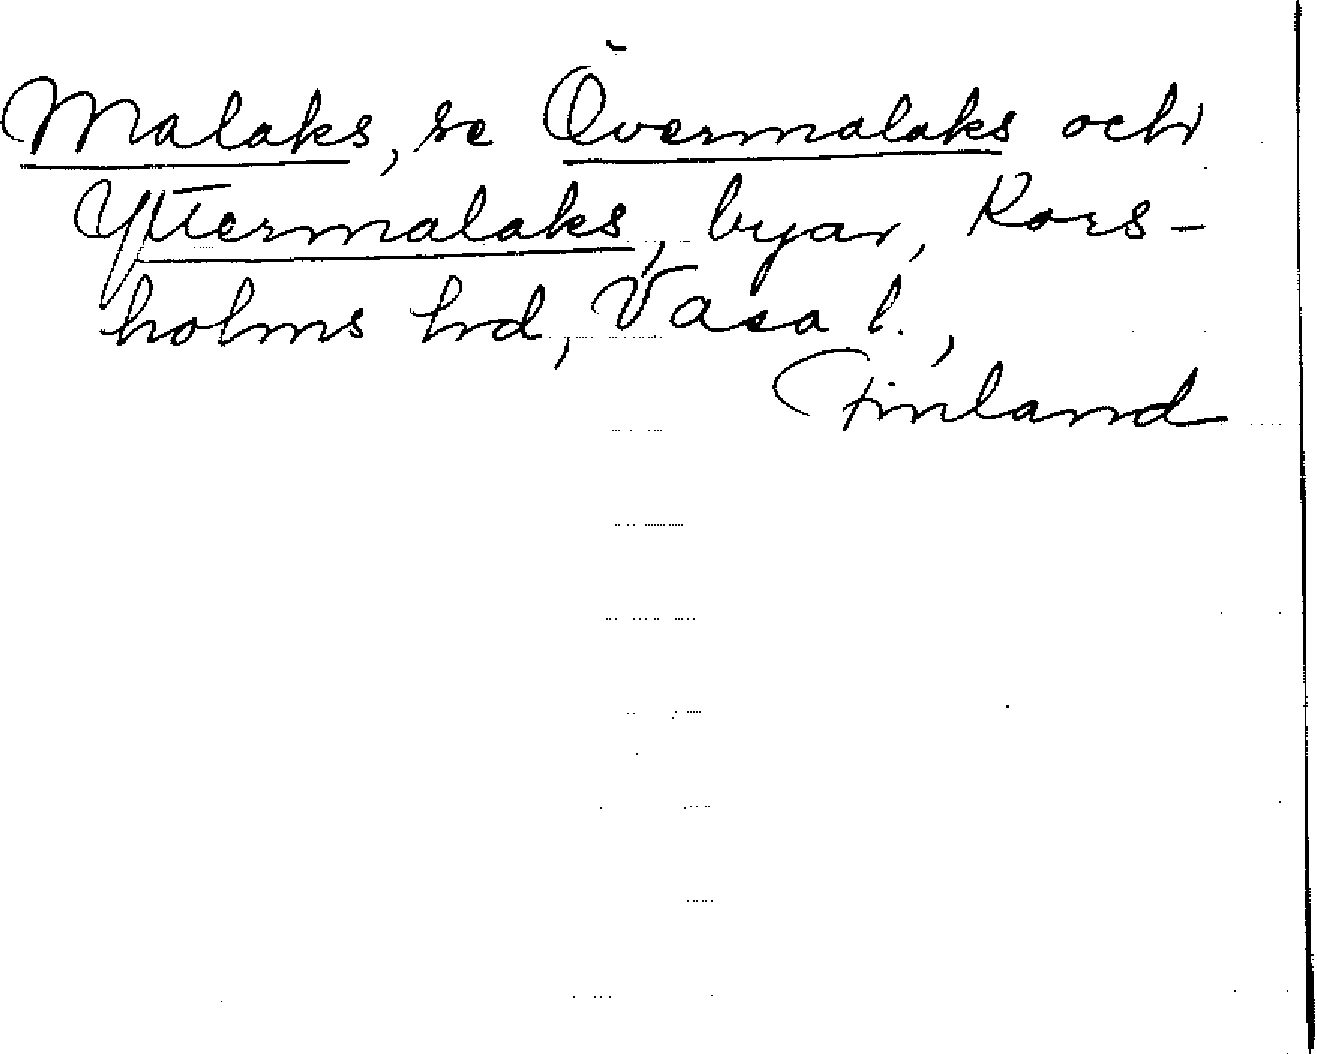 Malaks, se Övermalaks och
Yttermalaks, byar, Kors-
holms hd, Vasa l.,
Finland